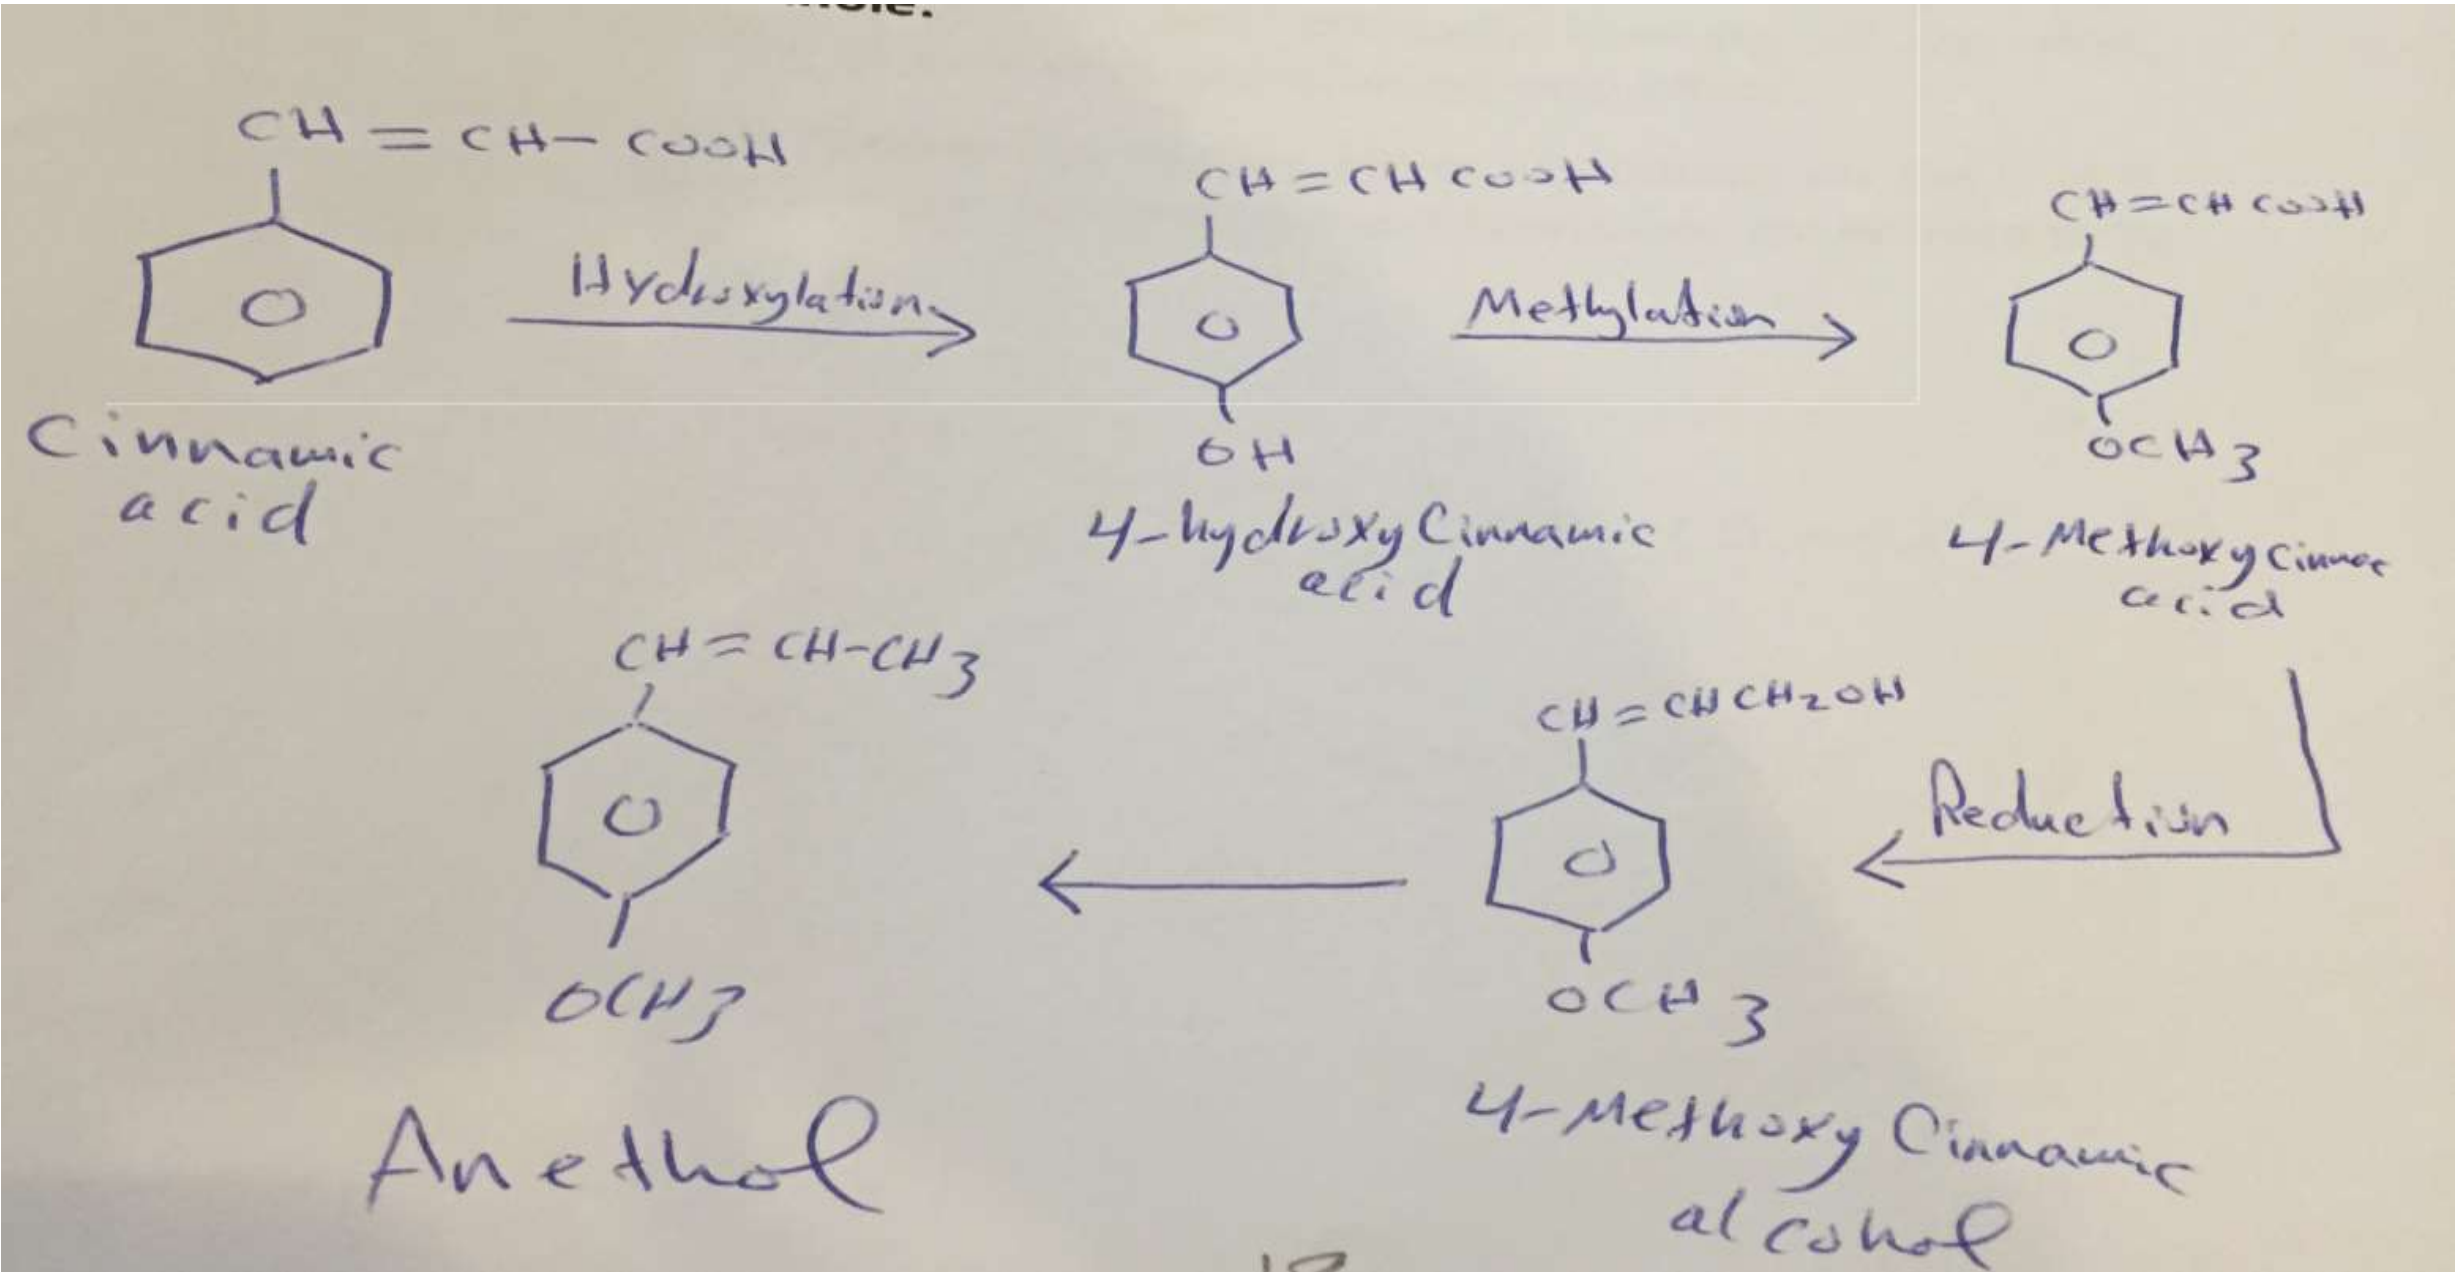 CH = CH - COOH
Hydroxylation
Cinnamic
acid
CH = CH COOH
OH
4-hydroxy Cinnamic
acid
Methylation
CH = CH COOH
OCH3
4-Methoxy
acid
Reduction
CH = CH CH2OH
OCH3
4-Methoxy Cinnamic
alcohol
CH = CH-CH3
OCH3
Anethol